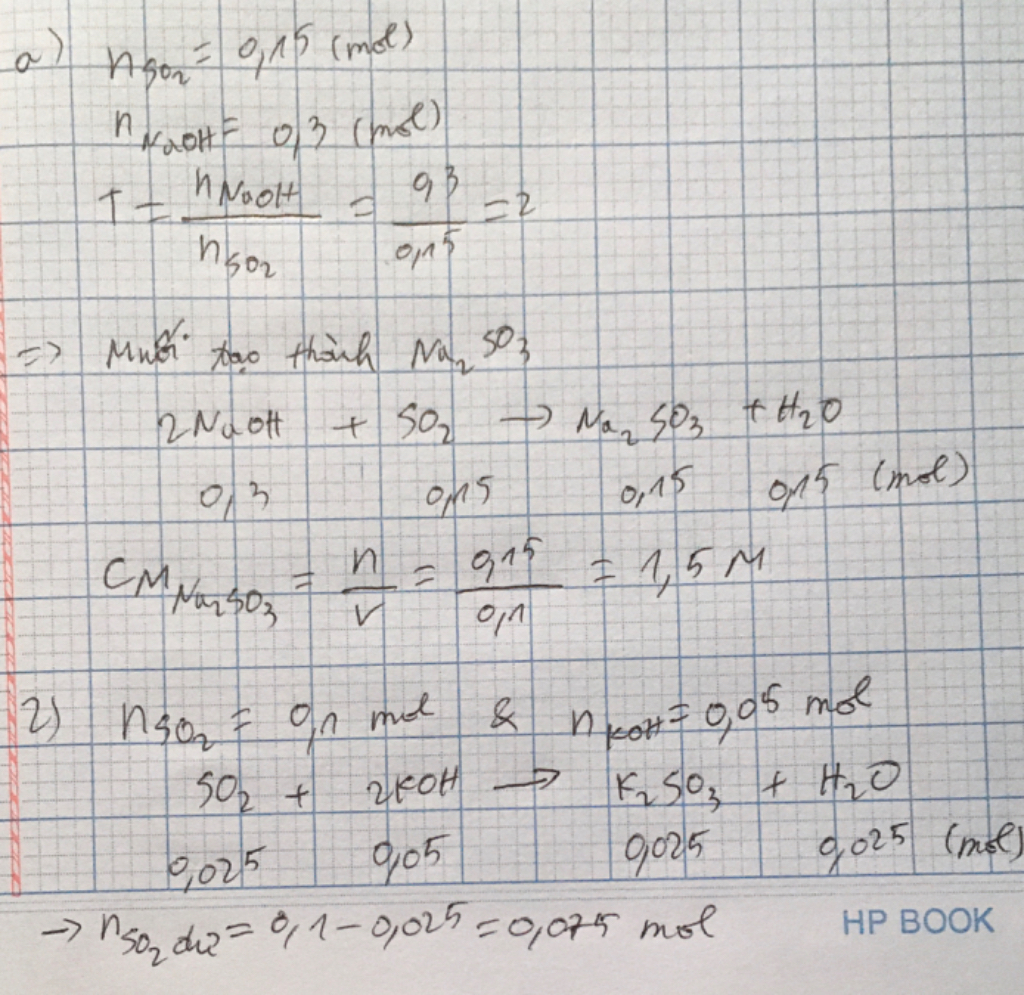 a) nSO₂ = 0,15 (mol)
nNaOH = 0,3 (mol)
T = nNaOH / nSO₂ = 0,3 / 0,15 = 2
=> Muối tạo thành Na₂SO₃
2NaOH + SO₂ → Na₂SO₃ + H₂O
0,3 0,15 0,15 0,15 (mol)
CM Na₂SO₃ = n / V = 0,15 / 0,1 = 1,5 M
2) nSO₂ = 0,1 mol & nKOH = 0,05 mol
SO₂ + 2KOH → K₂SO₃ + H₂O
0,025 0,05 0,025 0,025 (mol)
→ nSO₂ dư = 0,1 - 0,025 = 0,075 mol
HP BOOK